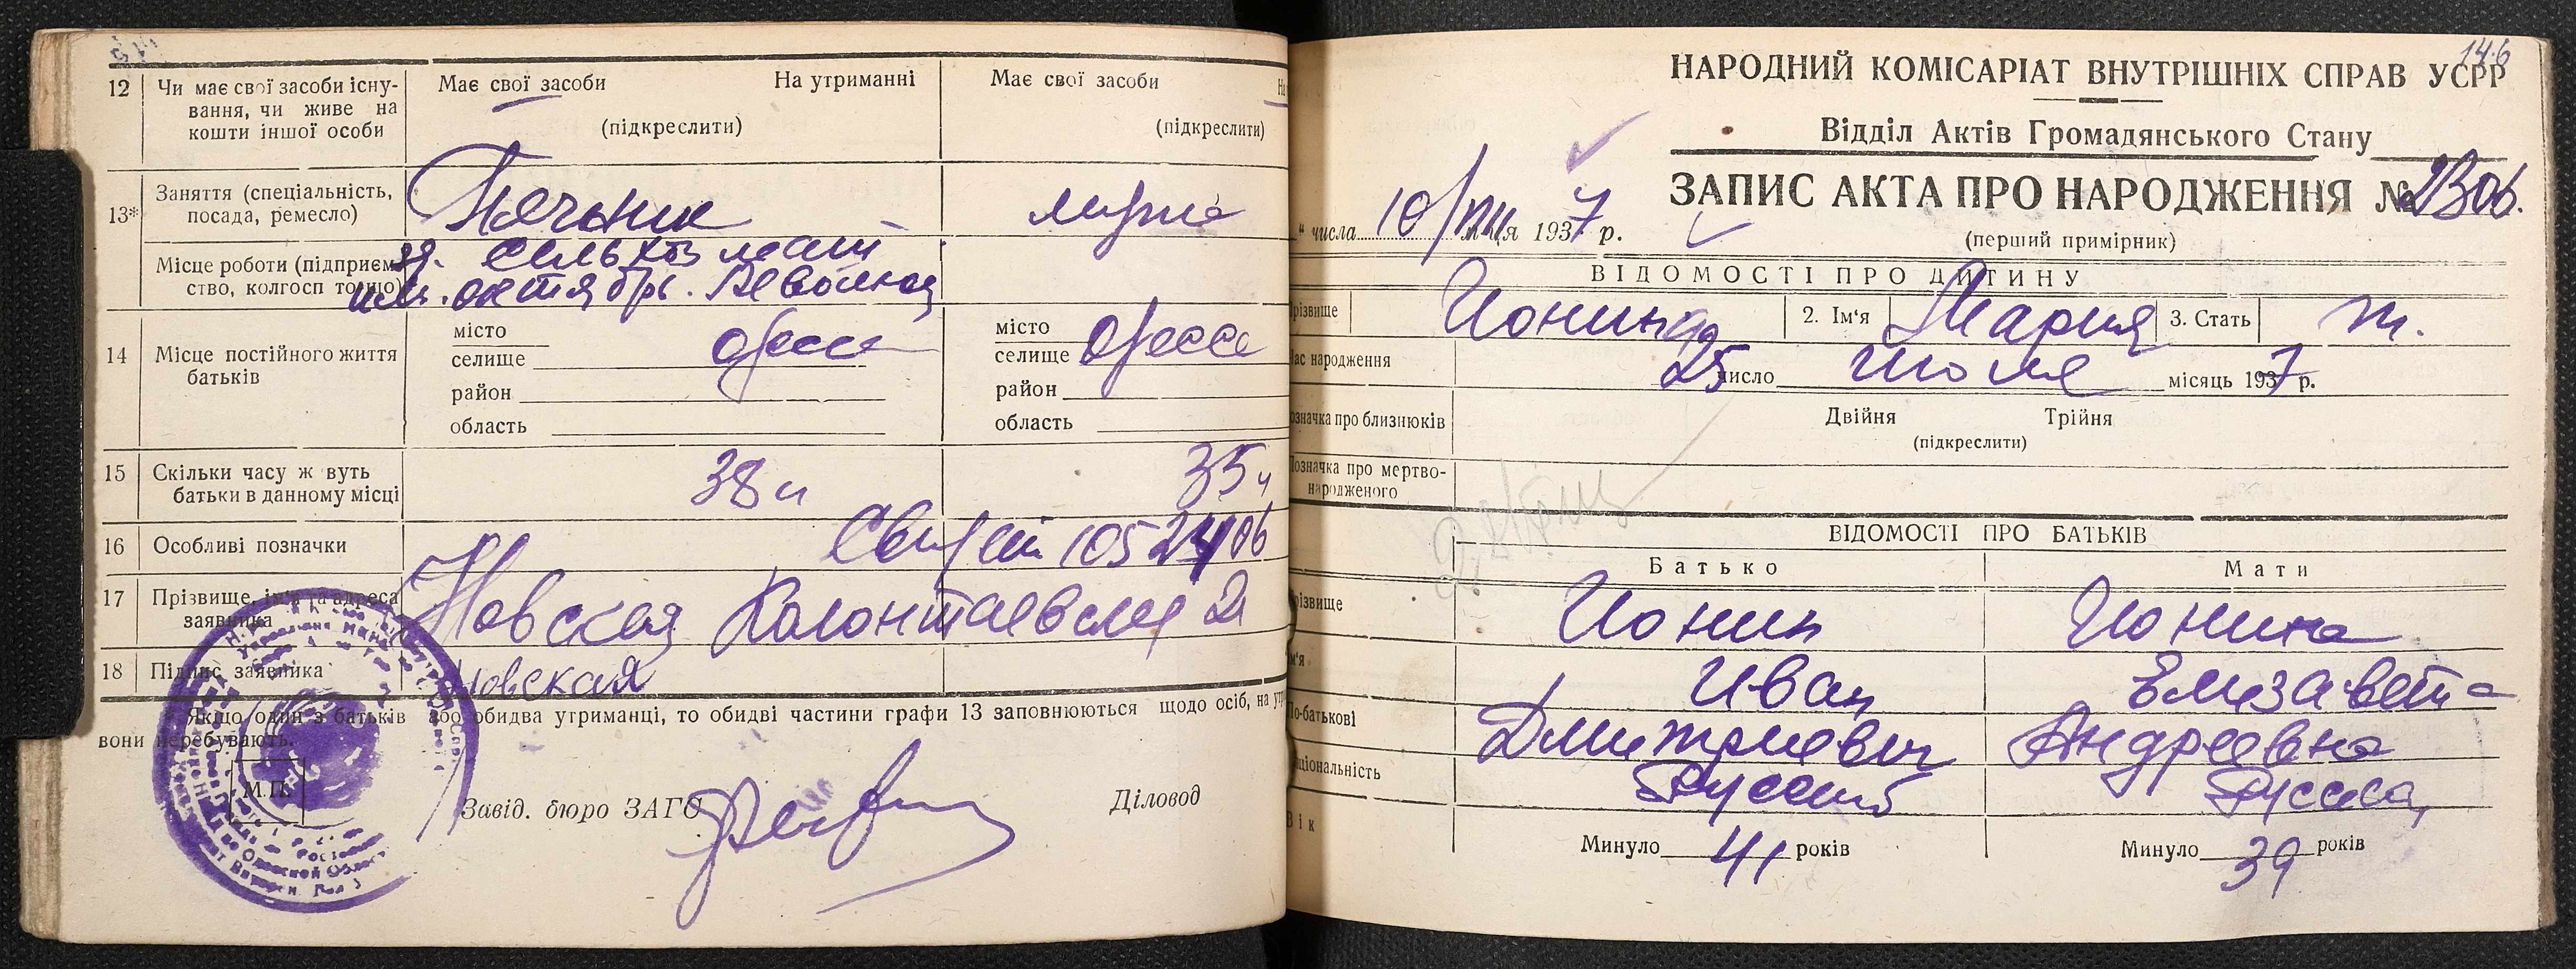 12 Чи має свої засоби існу-
вання, чи живе на
кошти іншої особи
Має свої засоби На утриманні
(підкреслити)
Має свої засоби
(підкреслити)
13* Заняття (спеціальність,
посада, ремесло)
Печник
Місце роботи (підприєм-
ство, колгосп тощо)
им. октябрь. Революц
14 Місце постійного життя
батьків
місто
селище Одесса
район
область
місто
селище Одесса
район
область
15 Скільки часу ж вуть
батьки в данному місці
38 л
35
16 Особливі позначки
17 Прізвище, ім'я та адреса
заявника
Новская Колонтаевская 21
18 Підпис заявника
Новская
Якщо один з батьків або обидва утриманці, то обидві частини графи 13 заповнюються щодо осіб, на
вони перебувають.
М.П.
Завід. бюро ЗАГС
Діловод
146
НАРОДНИЙ КОМІСАРІАТ ВНУТРІШНІХ СПРАВ УСРР
Відділ Актів Громадянського Стану
ЗАПИС АКТА ПРО НАРОДЖЕННЯ № 2306.
" числа 10/VIII м-ця 1937 р.
(перший примірник)
ВІДОМОСТІ ПРО ДИТИНУ
Прізвище Ионина 2. Ім'я Мария 3. Стать ж.
Час народження 25 число Июля місяць 1937 р.
Позначка про близнюків
Двійня Трійня
(підкреслити)
Позначка про мертво-
народженого
ВІДОМОСТІ ПРО БАТЬКІВ
Батько Мати
Прізвище Ионин Ионина
Ім'я Иван Елизавета
По-батькові Дмитриевич Андреевна
Національність Русский Русская
Вік
Минуло 41 років
Минуло 39 років